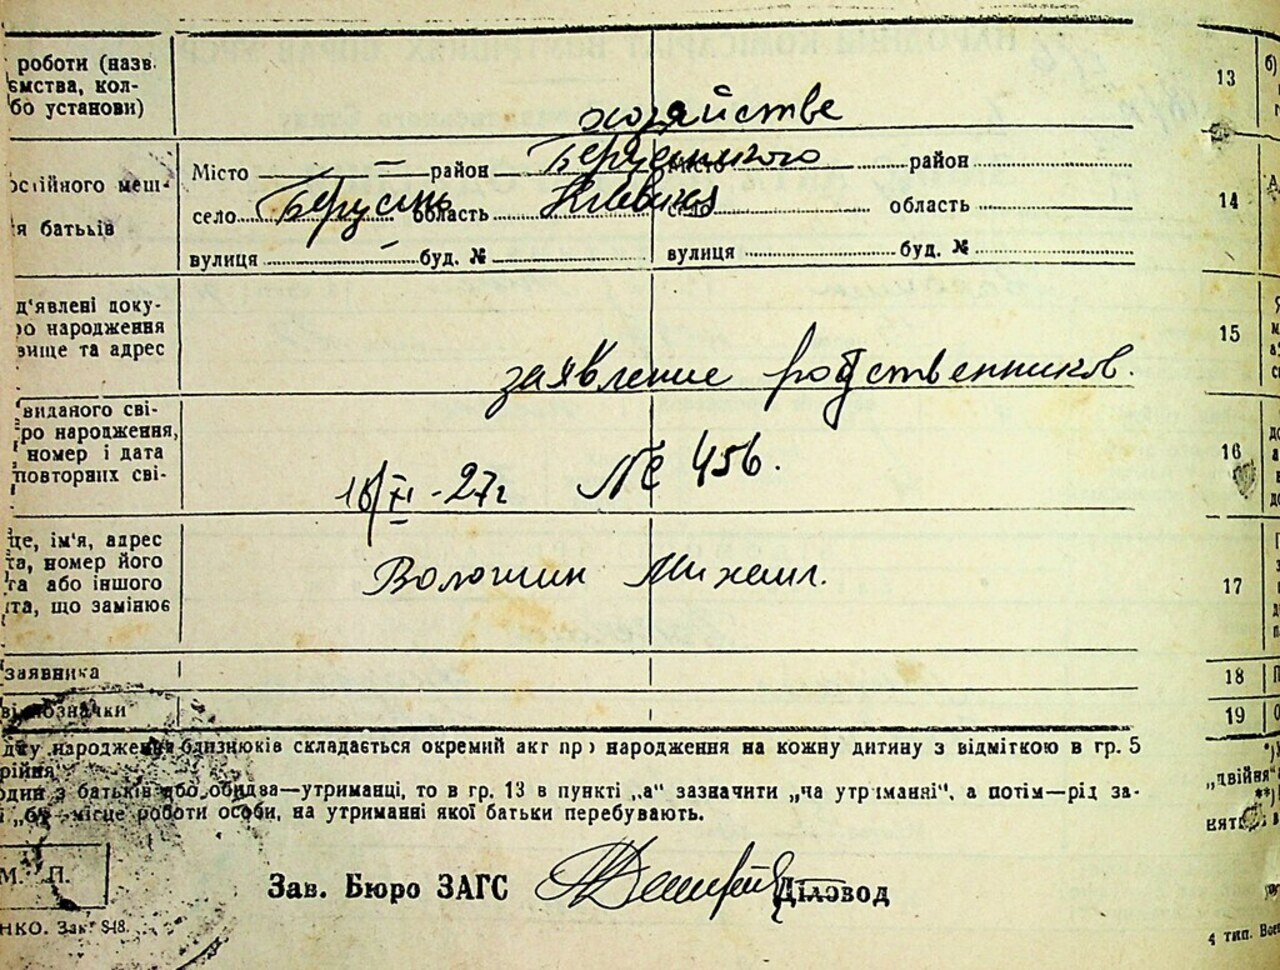 роботи (назв.
ємства, кол-
бо установи)
хозяйстве
13
б)
Місто район Місто район
осійного меш-
я батьків
село Берусень область Киевская село область
14
вулиця буд. № вулиця буд. №
д'явлені доку-
ро народження
вище та адрес
заявление родственников.
15
виданого сві-
ро народження,
номер і дата
повторних сві-
16/XI -27г № 456.
16
це, ім'я, адрес
та, номер його
та або іншого
нта, що замінює
Волошин Михаил.
17
заявника
18
ві позначки
19
дку народження близнюків складається окремий акт про народження на кожну дитину з відміткою в гр. 5
рійня
„двійня“
один з батьків або обидва—утриманці, то в гр. 13 в пункті „а“ зазначити „на утриманні“, а потім—рід за-
„б“—місце роботи особи, на утриманні якої батьки перебувають.
М. П.
Зав. Бюро ЗАГС Діловод
НКО. Зак. 548.
4 тип.